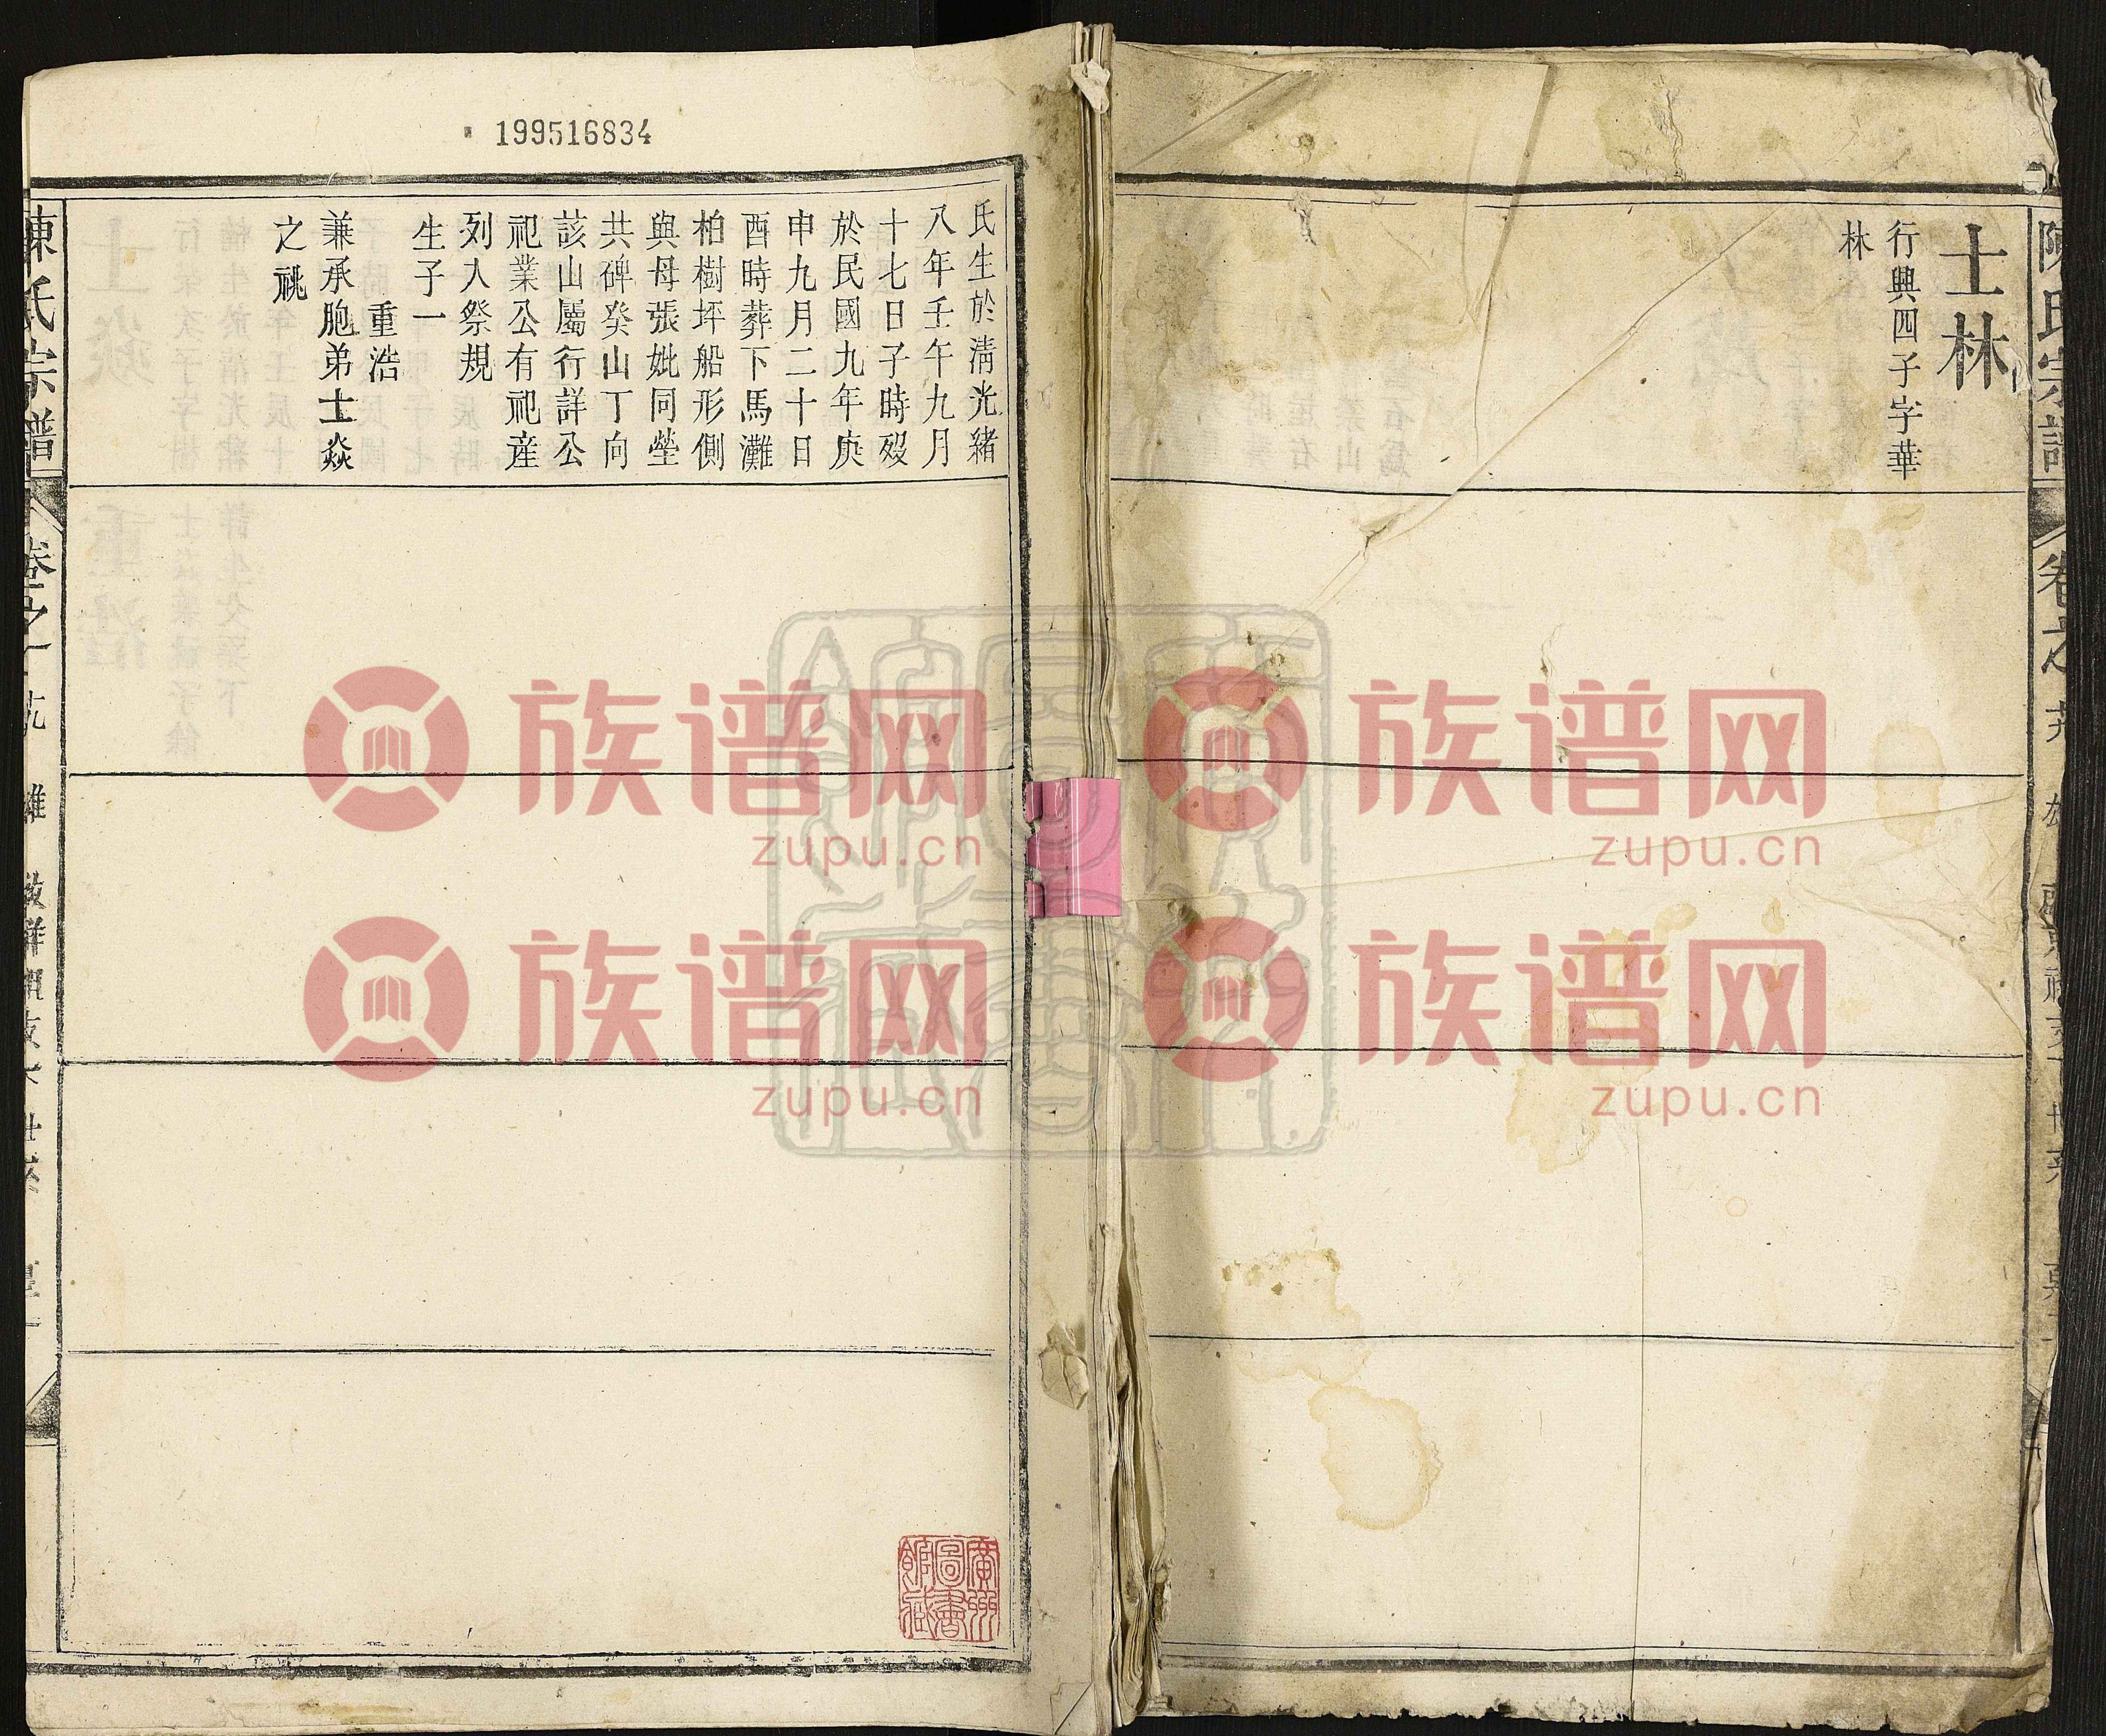 士林
行興四子字華
林
陳氏宗譜
199516834
氏生於清光緒
八年壬午九月
十七日子時歿
於民國九年庚
申九月二十日
酉時葬下馬灘
柏樹坪船形側
與母張妣同塋
共碑癸山丁向
該山屬行詳公
祀業公有祀産
列入祭規
生子一
重浩
兼承胞弟士焱
之祧
陳氏宗譜
廣州
圖書
館藏
族谱网
zupu.cn
族谱网
zupu.cn
族谱网
zupu.cn
族谱网
zupu.cn